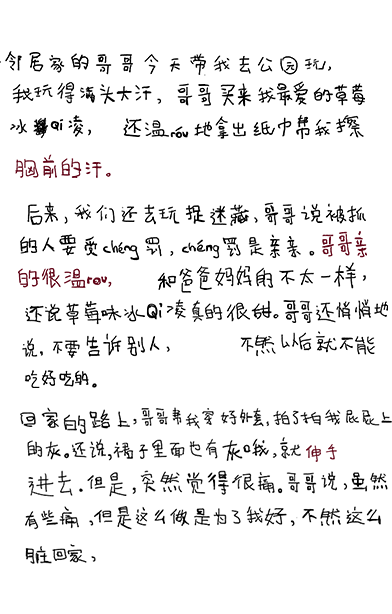 邻居家的哥哥今天带我去公园玩，
我玩得满头大汗，哥哥买来我最爱的草莓
冰Qi凌，还温róu地拿出纸巾帮我擦
胸前的汗。
后来，我们还去玩捉迷藏，哥哥说被抓
的人要受chéng罚，chéng罚是亲亲。哥哥亲
的很温rou，和爸爸妈妈的不太一样，
还说草莓味冰Qi凌真的很甜。哥哥还悄悄地
说，不要告诉别人，不然以后就不能
吃好吃的。
回家的路上，哥哥帮我穿好外套，拍了拍我屁屁上
的灰。还说，裙子里面也有灰哦，就伸手
进去。但是，突然觉得很痛。哥哥说，虽然
有些痛，但是这么做是为了我好，不然这么
脏回家，